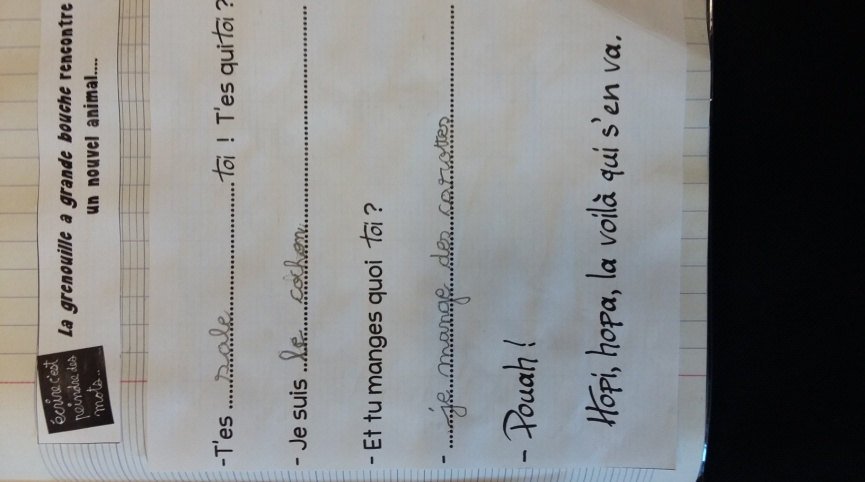 écrire c'est
peindre des
mots..
La grenouille a grande bouche rencontre
un nouvel animal....
-T'es sale toi ! T'es qui toi ?
- Je suis le cochon
- Et tu manges quoi toi ?
- je mange des carottes
- Pouah !
Hopi, hopa, la voilà qui s'en va.